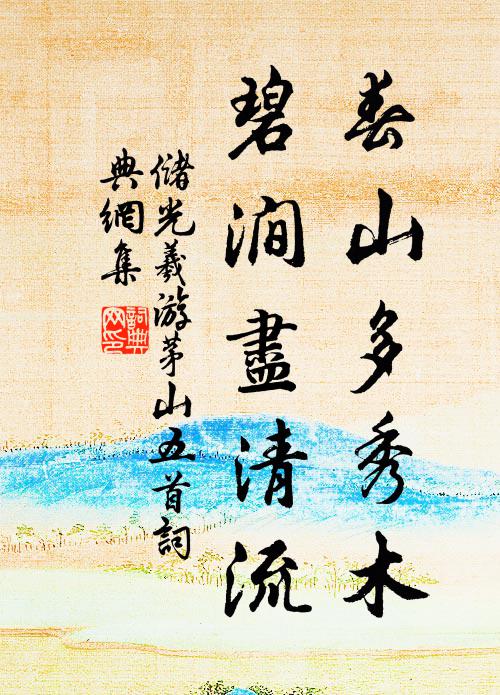 春山多秀木
碧澗盡清流
儲光羲游茅山五首詞
典網集
詞典
网印